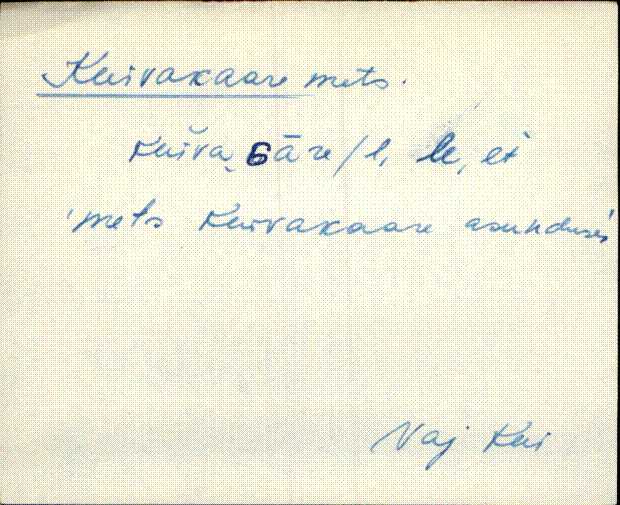 Kuivakaare mets.
kuĭva, Gāre/l, le, et
'mets Kuivakaare asunduses
Vaj Kui